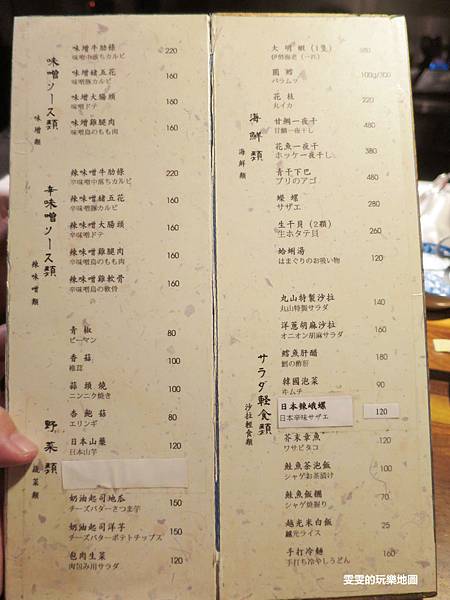 味噌ソース類
味噌類
味噌牛肋條 220
味噌中落ちカルビ
味噌豬五花 160
味噌豚カルビ
味噌大腸頭 160
味噌ドテ
味噌雞腿肉 160
味噌鳥のもも肉
辛味噌ソース類
辣味噌類
辣味噌牛肋條 220
辛味噌中落ちカルビ
辣味噌豬五花 160
辛味噌豚カルビ
辣味噌大腸頭 160
辛味噌ドテ
辣味噌雞腿肉 160
辛味噌鳥のもも肉
辣味噌雞軟骨 160
辛味噌鳥の軟骨
野菜類
蔬菜類
青椒 80
ピーマン
香菇 100
椎茸
蒜頭燒 100
ニンニク焼き
杏鮑菇 80
エリンギ
日本山藥 120
日本山芋
奶油起司地瓜 150
チーズバターさつま芋
奶油起司洋芋 150
チーズバターポテトチップス
包肉生菜 120
肉包み用サラダ
海鮮類
海鮮類
大明蝦(1隻) 380
伊勢海老(一匹)
圓鱈 100g/300
バラムツ
花枝 220
丸イカ
甘鯛一夜干 480
甘鯛一夜干し
花魚一夜干 380
ホッケ一夜干し
青干下巴 280
ブリのアゴ
蠑螺 480
サザエ
生干貝(2顆) 260
生ホタテ貝
蛤蜊湯 120
はまぐりのお吸い物
サラダ軽食類
沙拉輕食類
丸山特製沙拉 140
丸山特製サラダ
洋蔥胡麻沙拉 160
オニオン胡麻サラダ
鱈魚肝醋 180
鱈の酢肝
韓國泡菜 90
キムチ
日本辣峨螺 120
日本辛味サザエ
芥末章魚 120
ワサビタコ
鮭魚茶泡飯 150
シャケお茶漬け
鮭魚飯糰 70
シャケ焼握り
越光米白飯 25
越光ライス
手打冷麵 160
手打ち冷やしうどん
雯雯的玩樂地圖